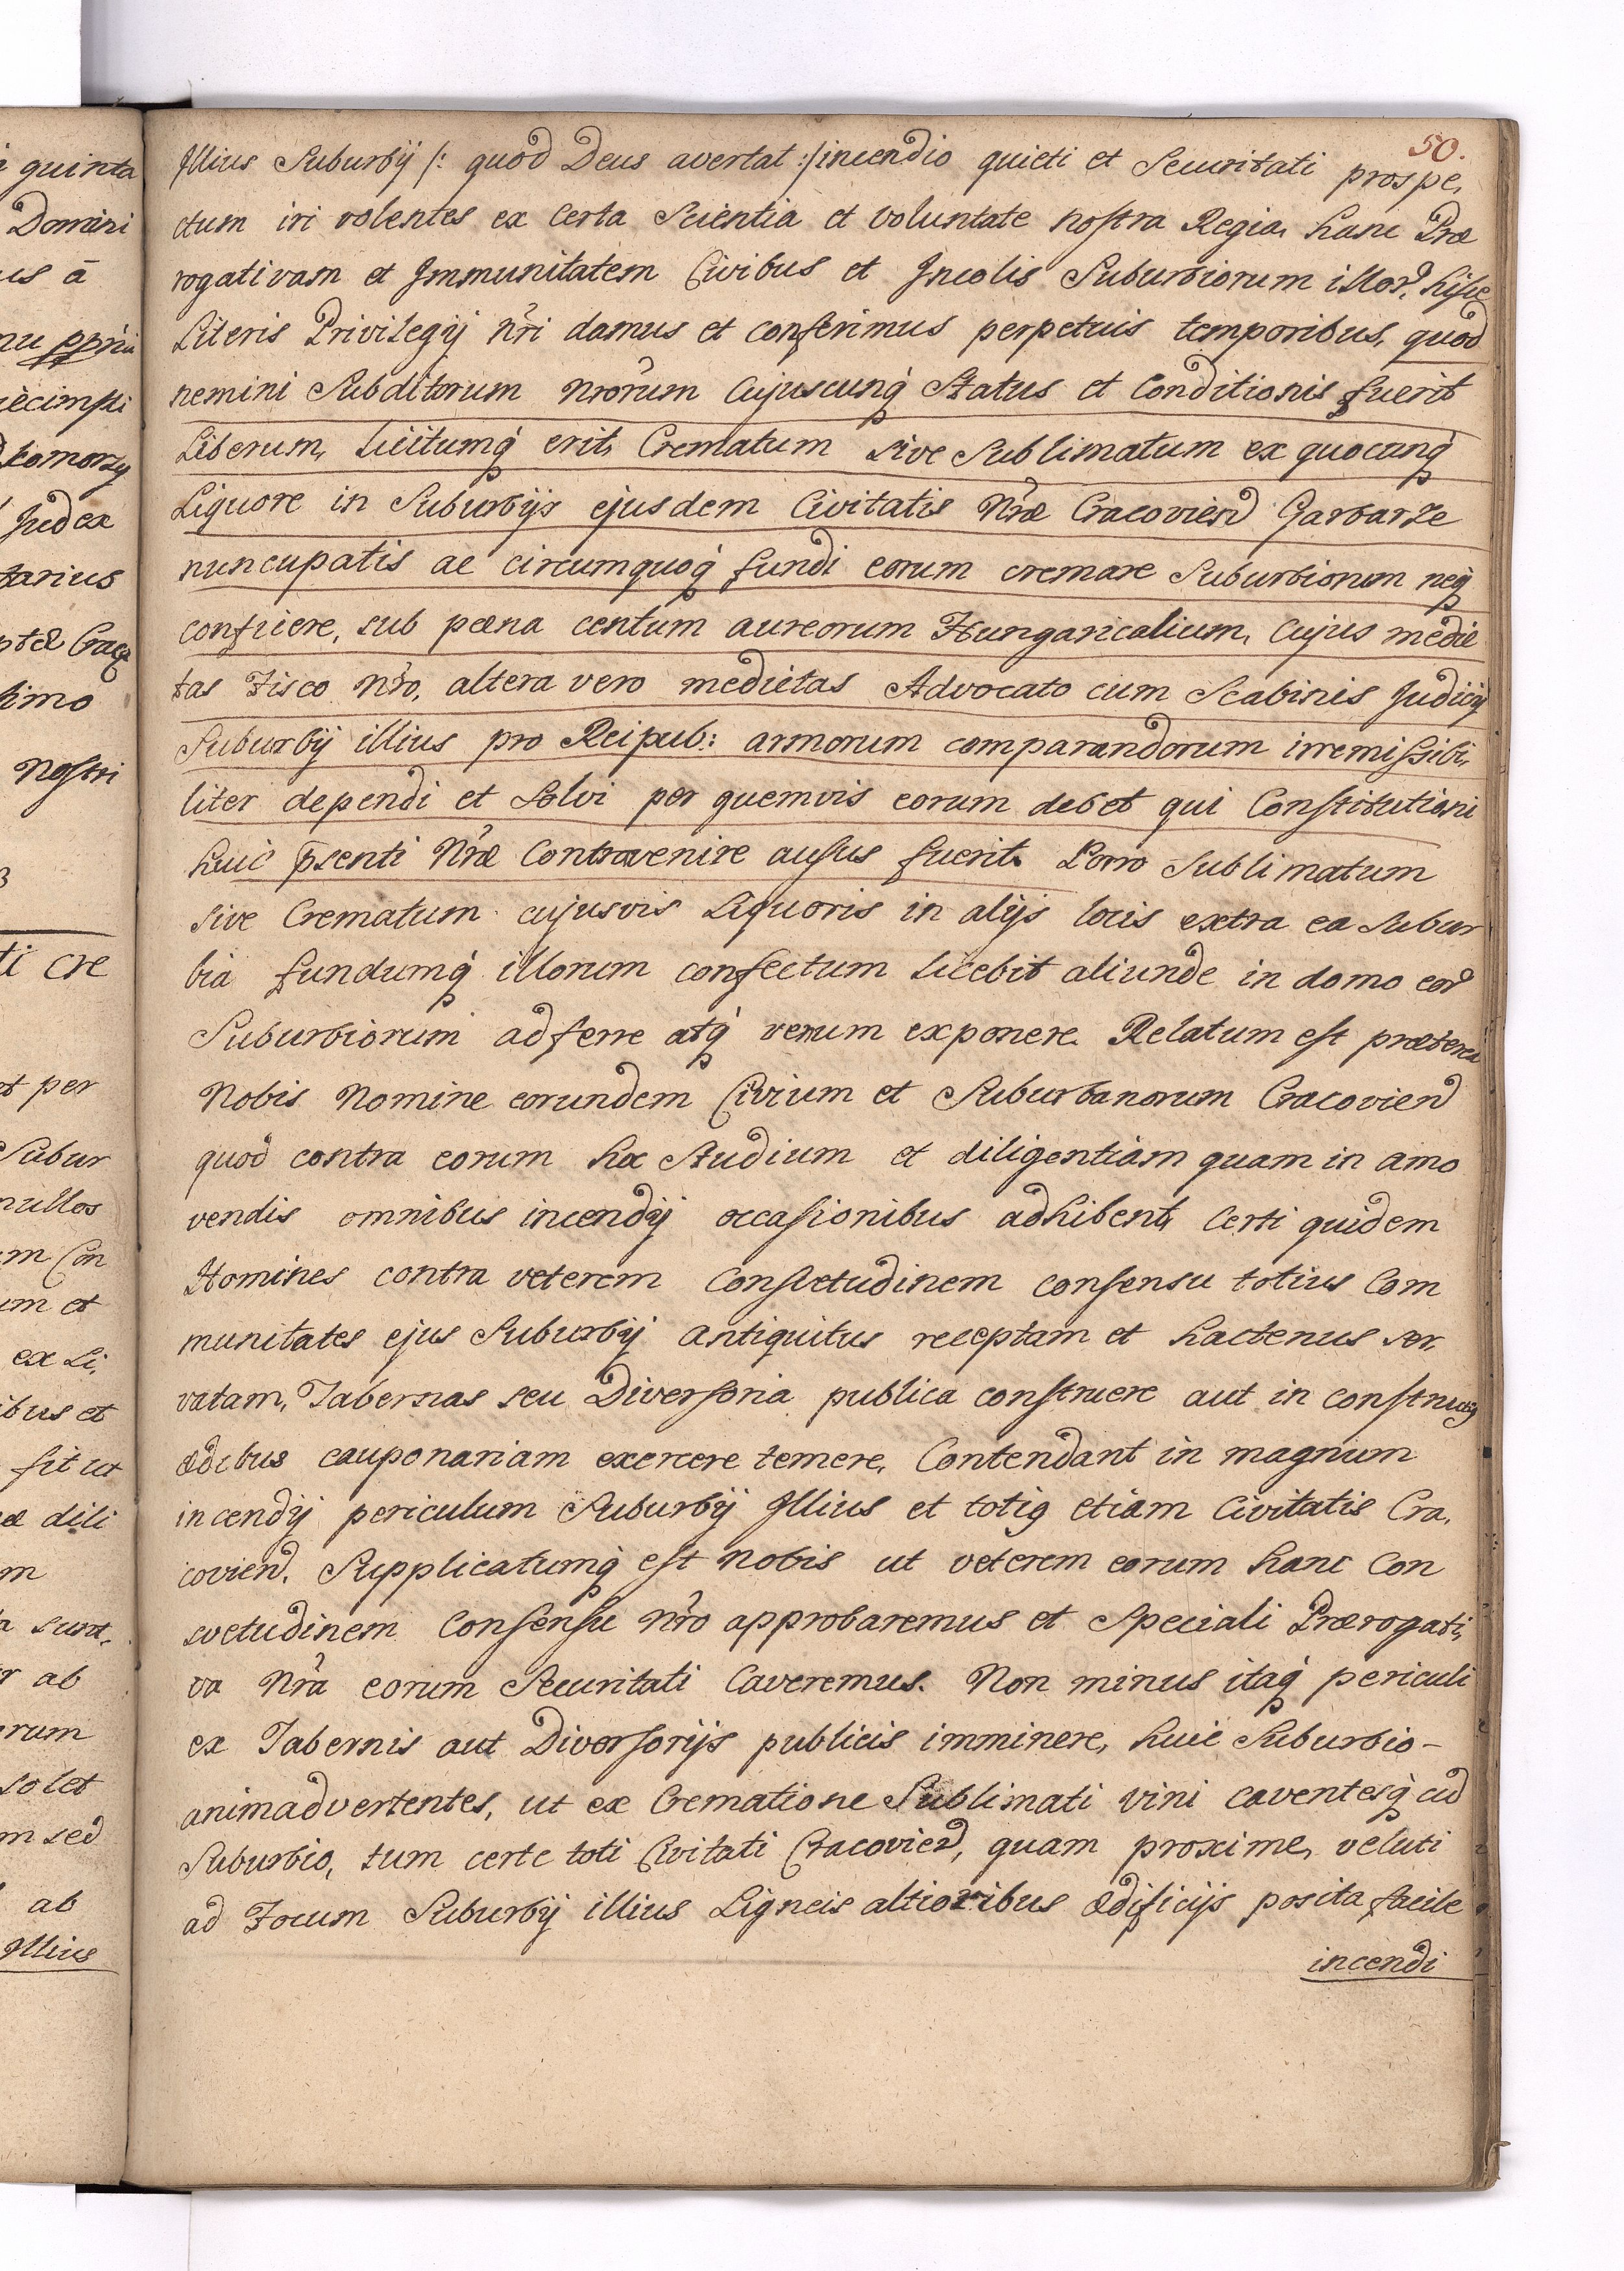 50.
Illius Suburbij /: quod Deus avertat :/ incendio quieti et Securitati prospe,
ctum iri volentes ex Certa Scientia et Voluntate nostra Regia, hanc Præ
rogativam et Immunitatem Civibus et Incolis Suburbiorum illor. hisce
Literis Privilegij nri damus et conferimus perpetuis temporibus, quod
nemini Subditorum nrorum Cujuscunq Status et Conditionis fuerit
Liberum, licitumq erit, Crematum sive Sublimatum ex quocunq
Liquore in Suburbijs ejusdem Civitatis Nræ Cracovien Garbarze
nuncupatis ac circumquoq fundi eorum cremare Suburbiorum neq
conficere, sub pæna centum aureorum Hungaricalium, Cujus medie
tas Fisco nro, altera vero medietas Advocato cum Scabinis Judicij
Suburbij illius pro Reipub: armorum comparandorum irremissibi,
liter dependi et Solvi per quemvis eorum debet qui Constitutioni
huic psenti Nræ Contravenire ausus fuerit. Porro Sublimatum
sive Crematum cujusvis Liquoris in alijs locis extra ea Subur
bia fundumq illorum confectum licebit aliunde in domo eor
Suburbiorum adferre atq venum exponere. Relatum est præterea
Nobis Nomine eorundem Civium et Suburbanorum Cracovien
quod contra eorum hæc Studium et diligentiam quam in amo
vendis omnibus incendij occasionibus adhibent, Certi quidem
Homines contra veterem Consvetudinem consensu totius Com
munitates ejus Suburbij antiquitus receptam et hactenus ser,
vatam, Tabernas seu Diversoria publica construere aut in constructis
ædibus cauponariam exercere temere, Contendant in magnum
incendij periculum Suburbij Illius et totig etiam Civitatis Cra,
covien. Supplicatumq est nobis ut veterem eorum hanc Con
svetudinem Consensu nro approbaremus et Speciali Prærogati,
va Nra eorum Securitati Caveremus. Non minus itaq periculi
ex Tabernis aut Diversorijs publicis imminere, huic Suburbio -
animadvertentes, ut ex Crematione Sublimati vini caventesq cud
Suburbio, tum certe toti Civitati Cracovien, quam proxime, veluti
ad Focum Suburbij illius Ligneis altioribus ædificijs posita facile
incendi
quinta
Domini
us ā
tarius
nostri
ti cre
et per
Subur
nullos
um et
ex Li,
ibus et
fit ut
dili
m
sunt,
ab
rum
solet
m sed
ab
Illius